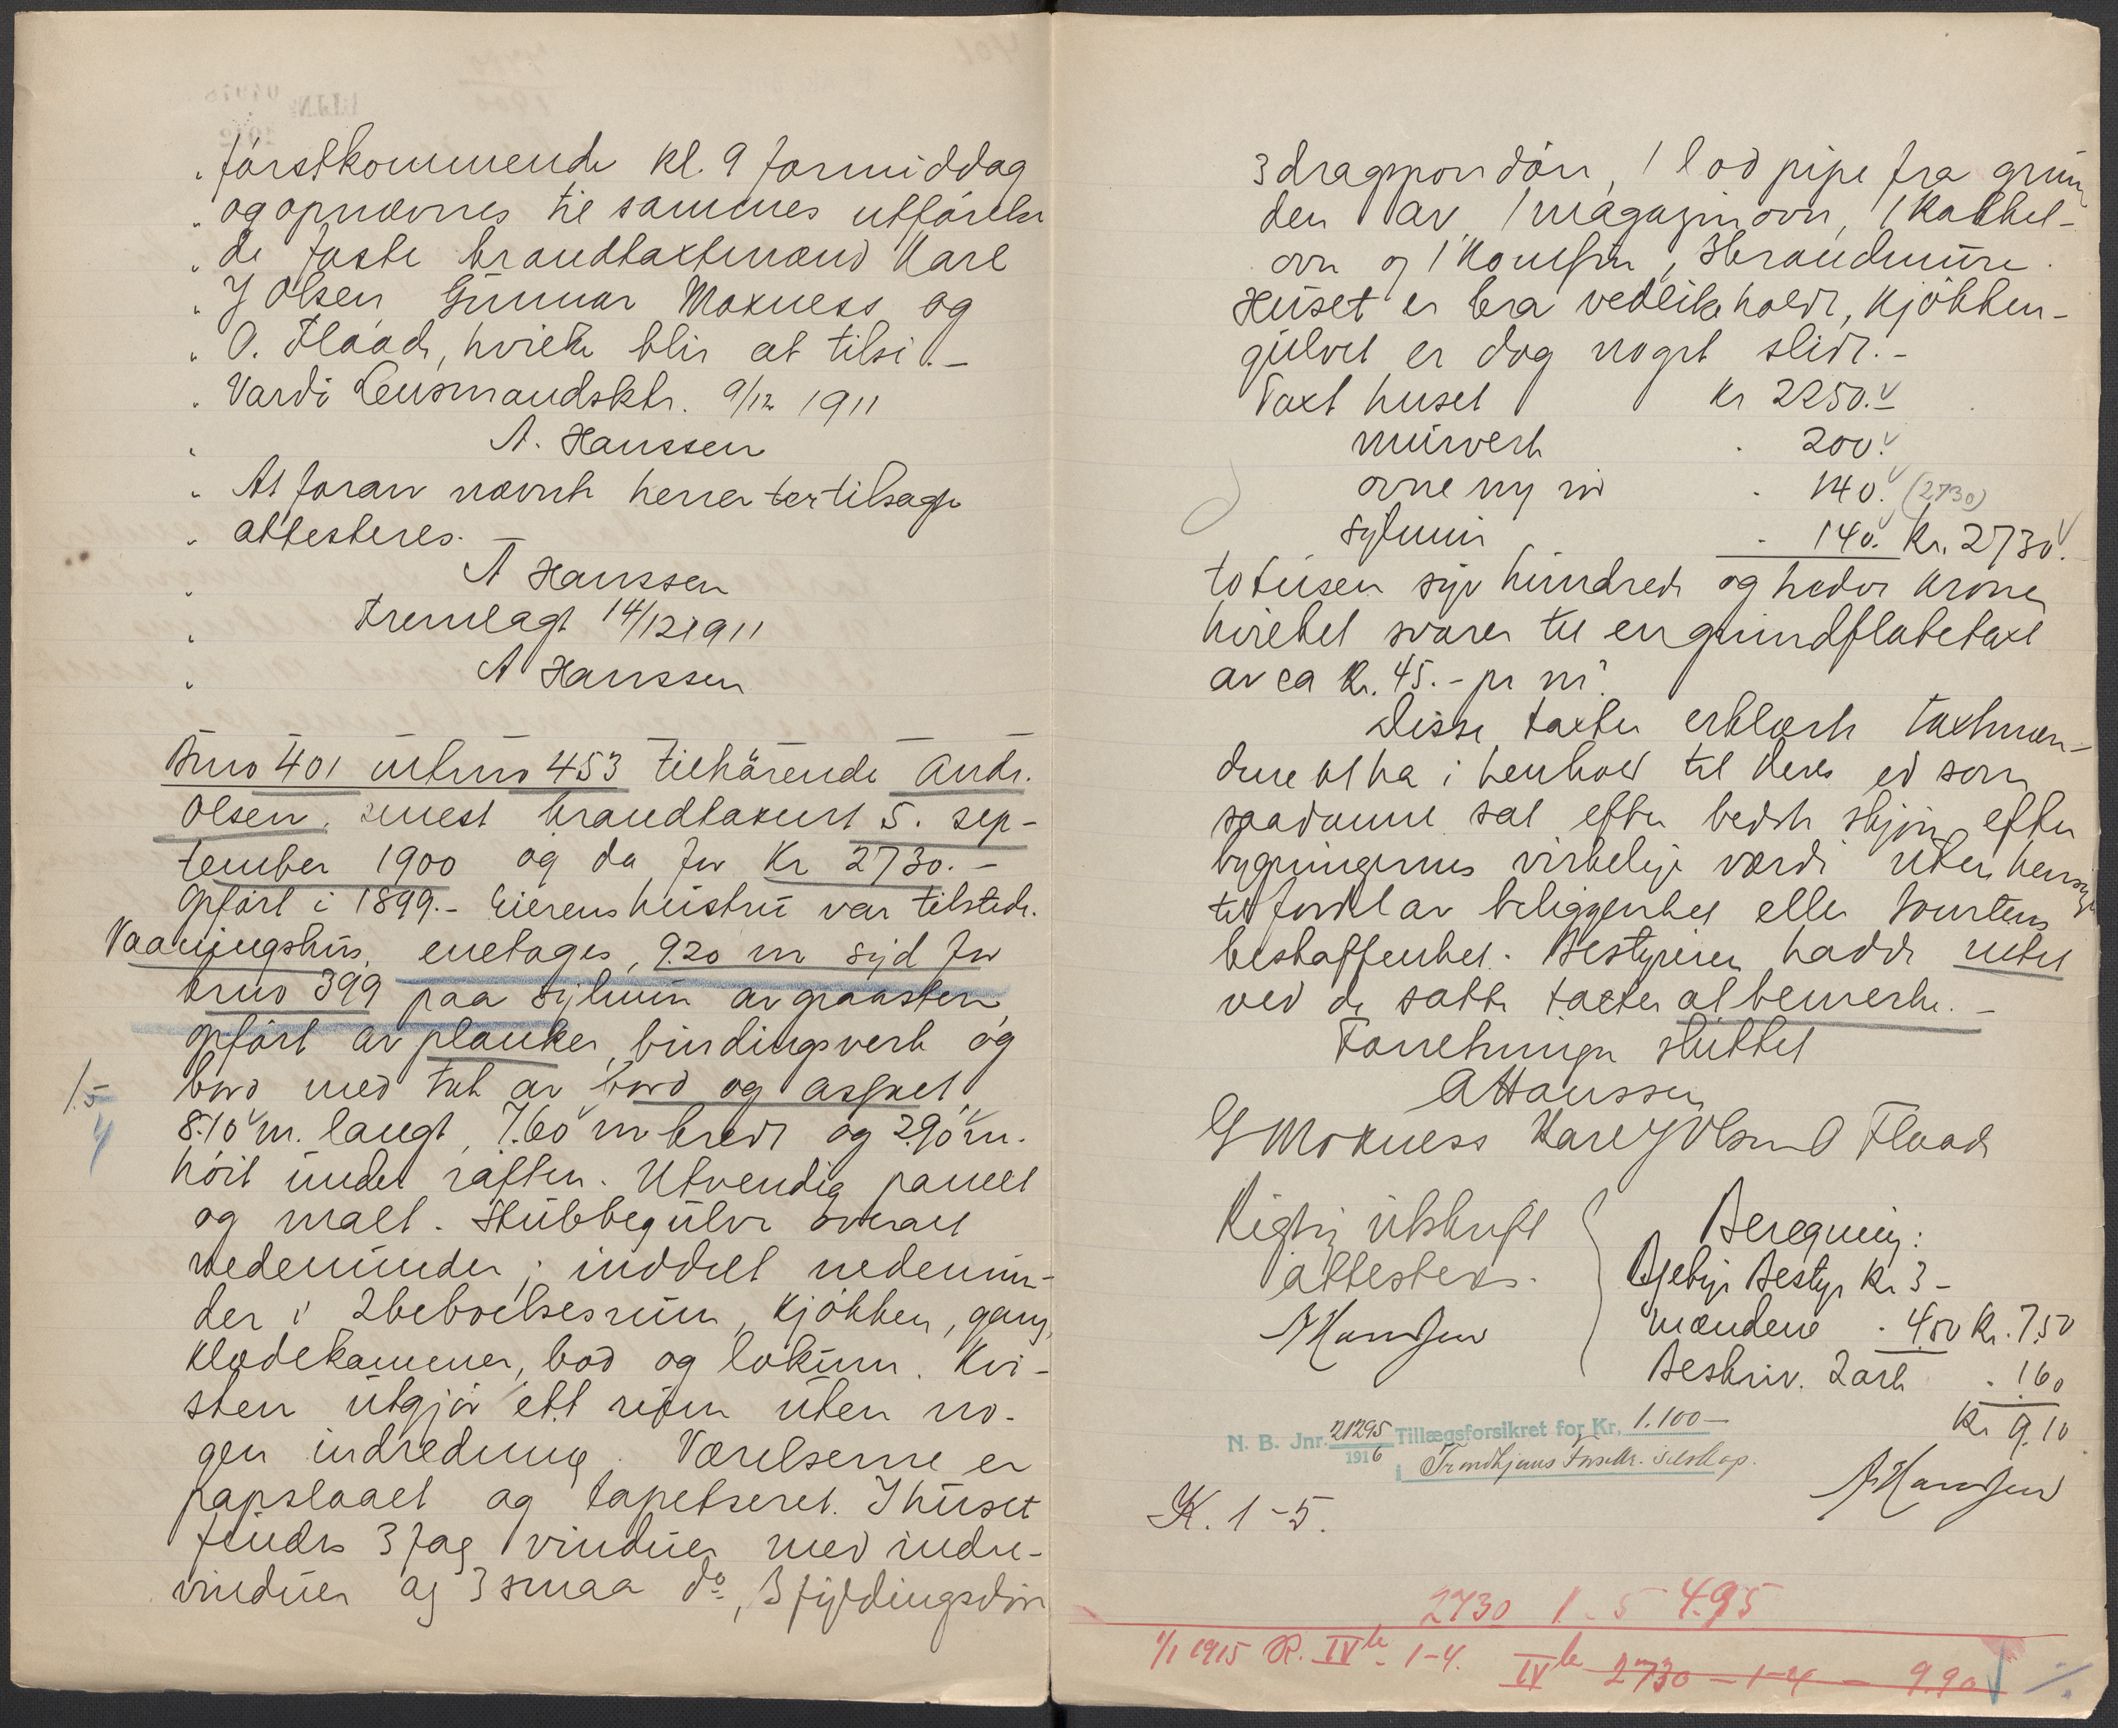 „ førstkommende kl. 9 formiddag
„ og opnævnes til sammes utførelse
„ de faste brandtaxtmænd Karl
„ J Olsen, Gunnar Moxness og
„ O. Flaad, hvilke blir at tilsi. –
„ Vardø Lensmandsktr. 9/12 1911
„ A. Hanssen
„ At foran nævnte herrer er tilsagt
„ attesteres. –
„ A Hanssen
„ Fremlagt 14/12 1911
„ A Hanssen
Bno 401 mtrno 453 tilhørende Andr.
Olsen, senest brandtaxert 5. sep-
tember 1900 og da for Kr 2730. –
Opført i 1899. – Eierens hustru var tilstede.
Vaaningshus, enetages, 9.20 m syd for
brno 399 paa sylmur av graasten
opført av planker, bindingsverk og
bord med tak av bord og asfalt,
1.5
4
8.10 m. langt, 7.60 m bredt og 2.90 m.
høit under raften. Utvendig panelt
og malt. Stubbegulve overalt
nedenunder; inddelt nedenun-
der i 2 beboelsesrum, kjøkken, gang,
klædekammer, bod og lokum. Kvi-
sten utgjør ett rum uten no-
gen indredning. Værelserne er
papslaaet og tapetseret. I huset
findes 3 fag vinduer med indre-
vinduer og 3 smaa do, 3 fyldingsdøre
3 dragspondøre, 1 lod pipe fra grun-
den av, 1 magazinovn, 1 kakkel-
ovn og 1 komfyr, 3 brandmure.
Huset er bra vedlikeholdt, kjøkken-
gulvet er dog noget slidt. –
Taxt huset Kr 2250. –
murverk „ 200.
ovne ny ird „ 140. (2730)
sylmur „ 140. Kr. 2730.
totusen syv hundrede og tredve kroner
hvilket svarer til en grundflatetaxt
av ca Kr. 45. – pr m².
Disse taxter erklærte taxtmæn-
dene at ha i henhold til deres ed som
saadanne sat efter bedste skjøn efter
bygningernes virkelige værdi uten hensyn
til fordel av beliggenhet eller tomtens
beskaffenhet. Bestyreren hadde intet
ved de satte taxter at bemerke. –
Forretningen sluttet
A Hanssen
G Moxness Karl J Olsen O Flaad
Rigtig utskrift
attesteres.
A Hanssen
Beregning:
Gebyr Bestyr Kr 3 –
mændene „ 4.50 Kr. 7.50
Beskriv. 2 ark „ 1.60
Kr 9.10
A Hanssen
N. B. Jnr. 21295 1916 Tillægsforsikret for Kr. 1.100 –
i Trondhjems Forsikr. selskap.
K. 1 – 5.
2730 1. – 5 4.95
1/1 1915 K. IVb – 1 – 4. IVb 2730 – 1 – 4 – 9.90